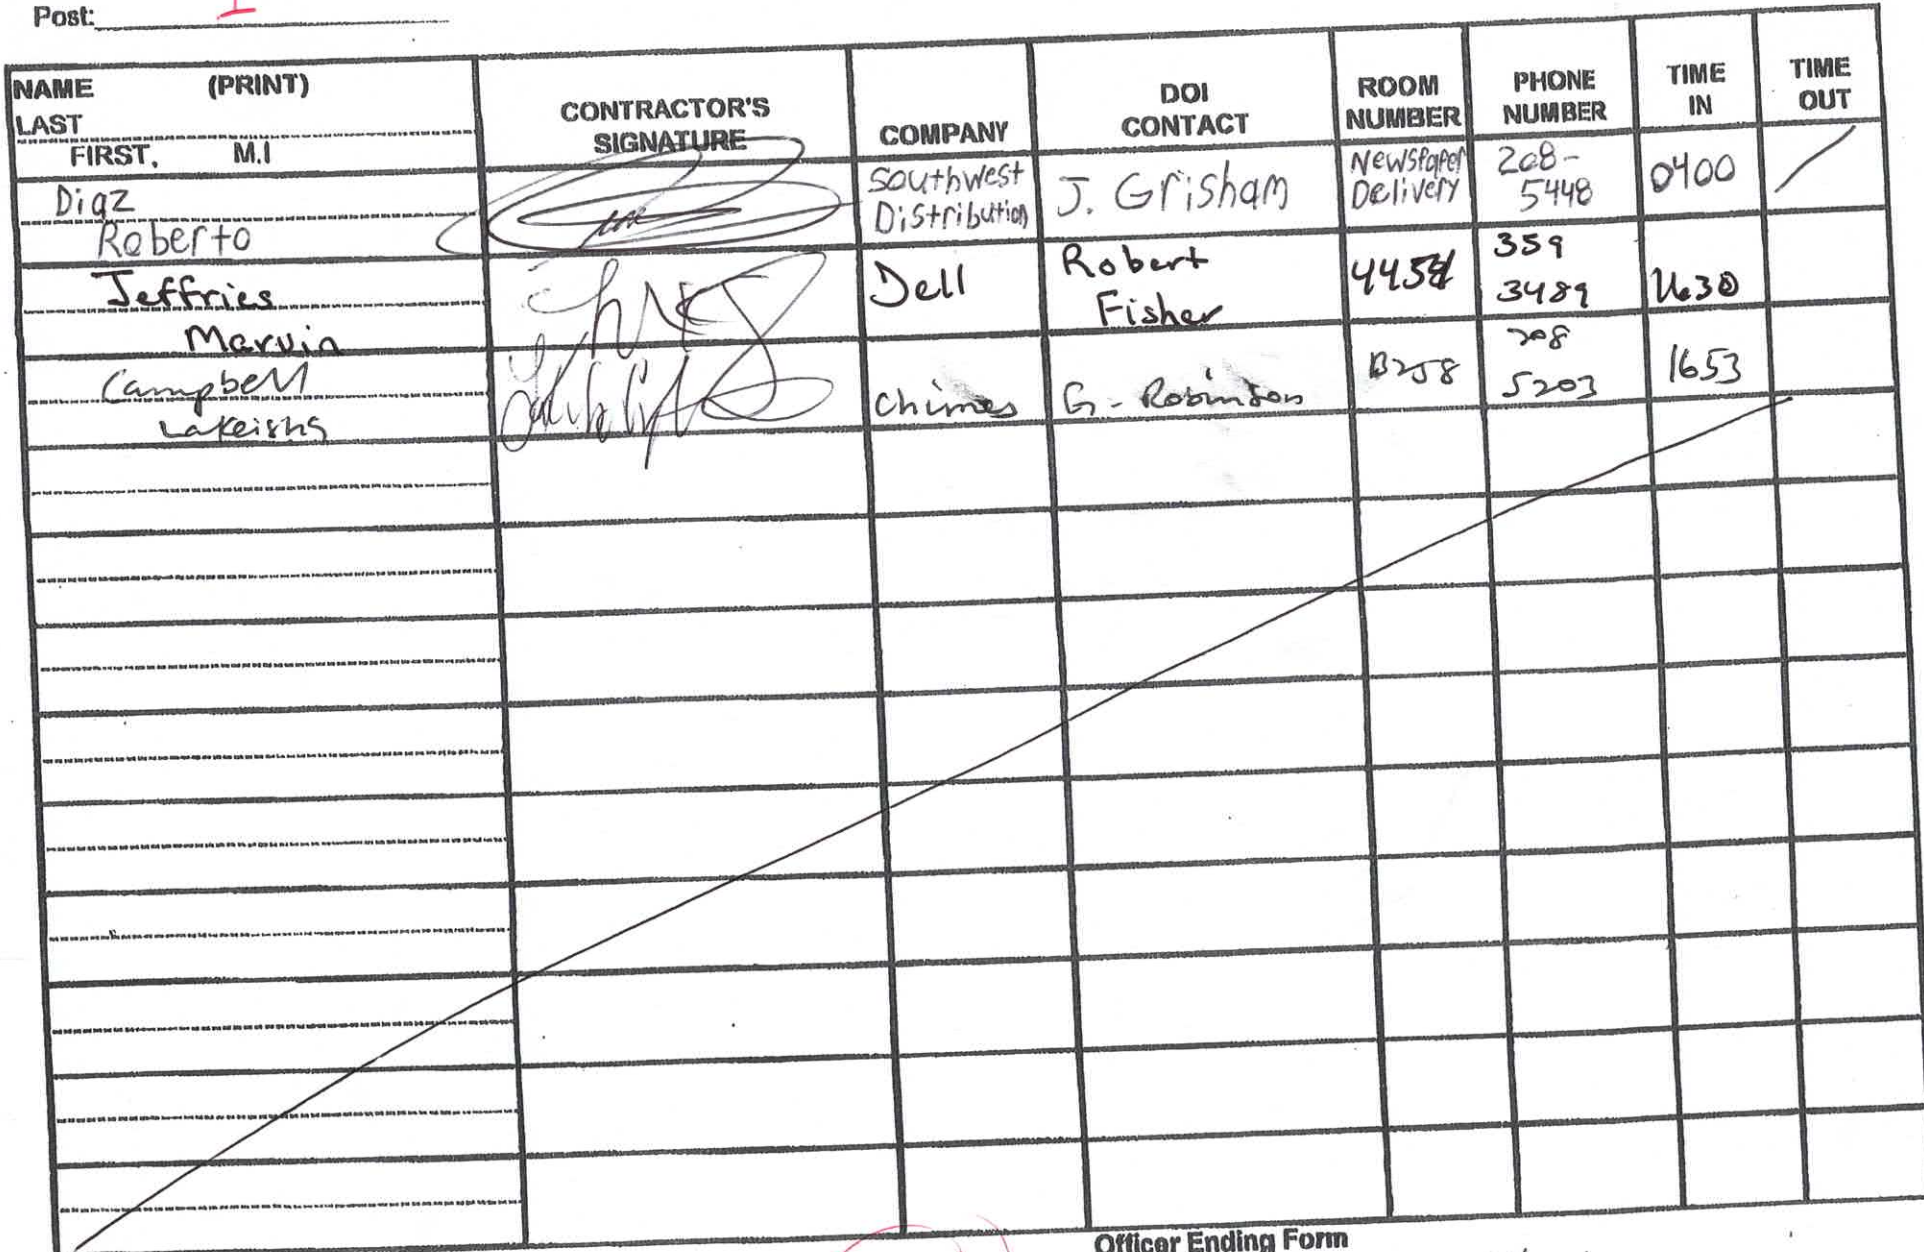 Post: I
NAME (PRINT)
LAST
FIRST, M.I
CONTRACTOR'S
SIGNATURE
COMPANY
DOI
CONTACT
ROOM
NUMBER
PHONE
NUMBER
TIME
IN
TIME
OUT
Diaz
Roberto
Southwest
Distribution
J. Grisham
Newspaper
Delivery
208-
5448
0400
Jeffries
Marvin
Dell
Robert
Fisher
359
3489
1630
Campbell
Lakeisha
Chimes
G. Robinson
B258
208
5203
1653
Officer Ending Form